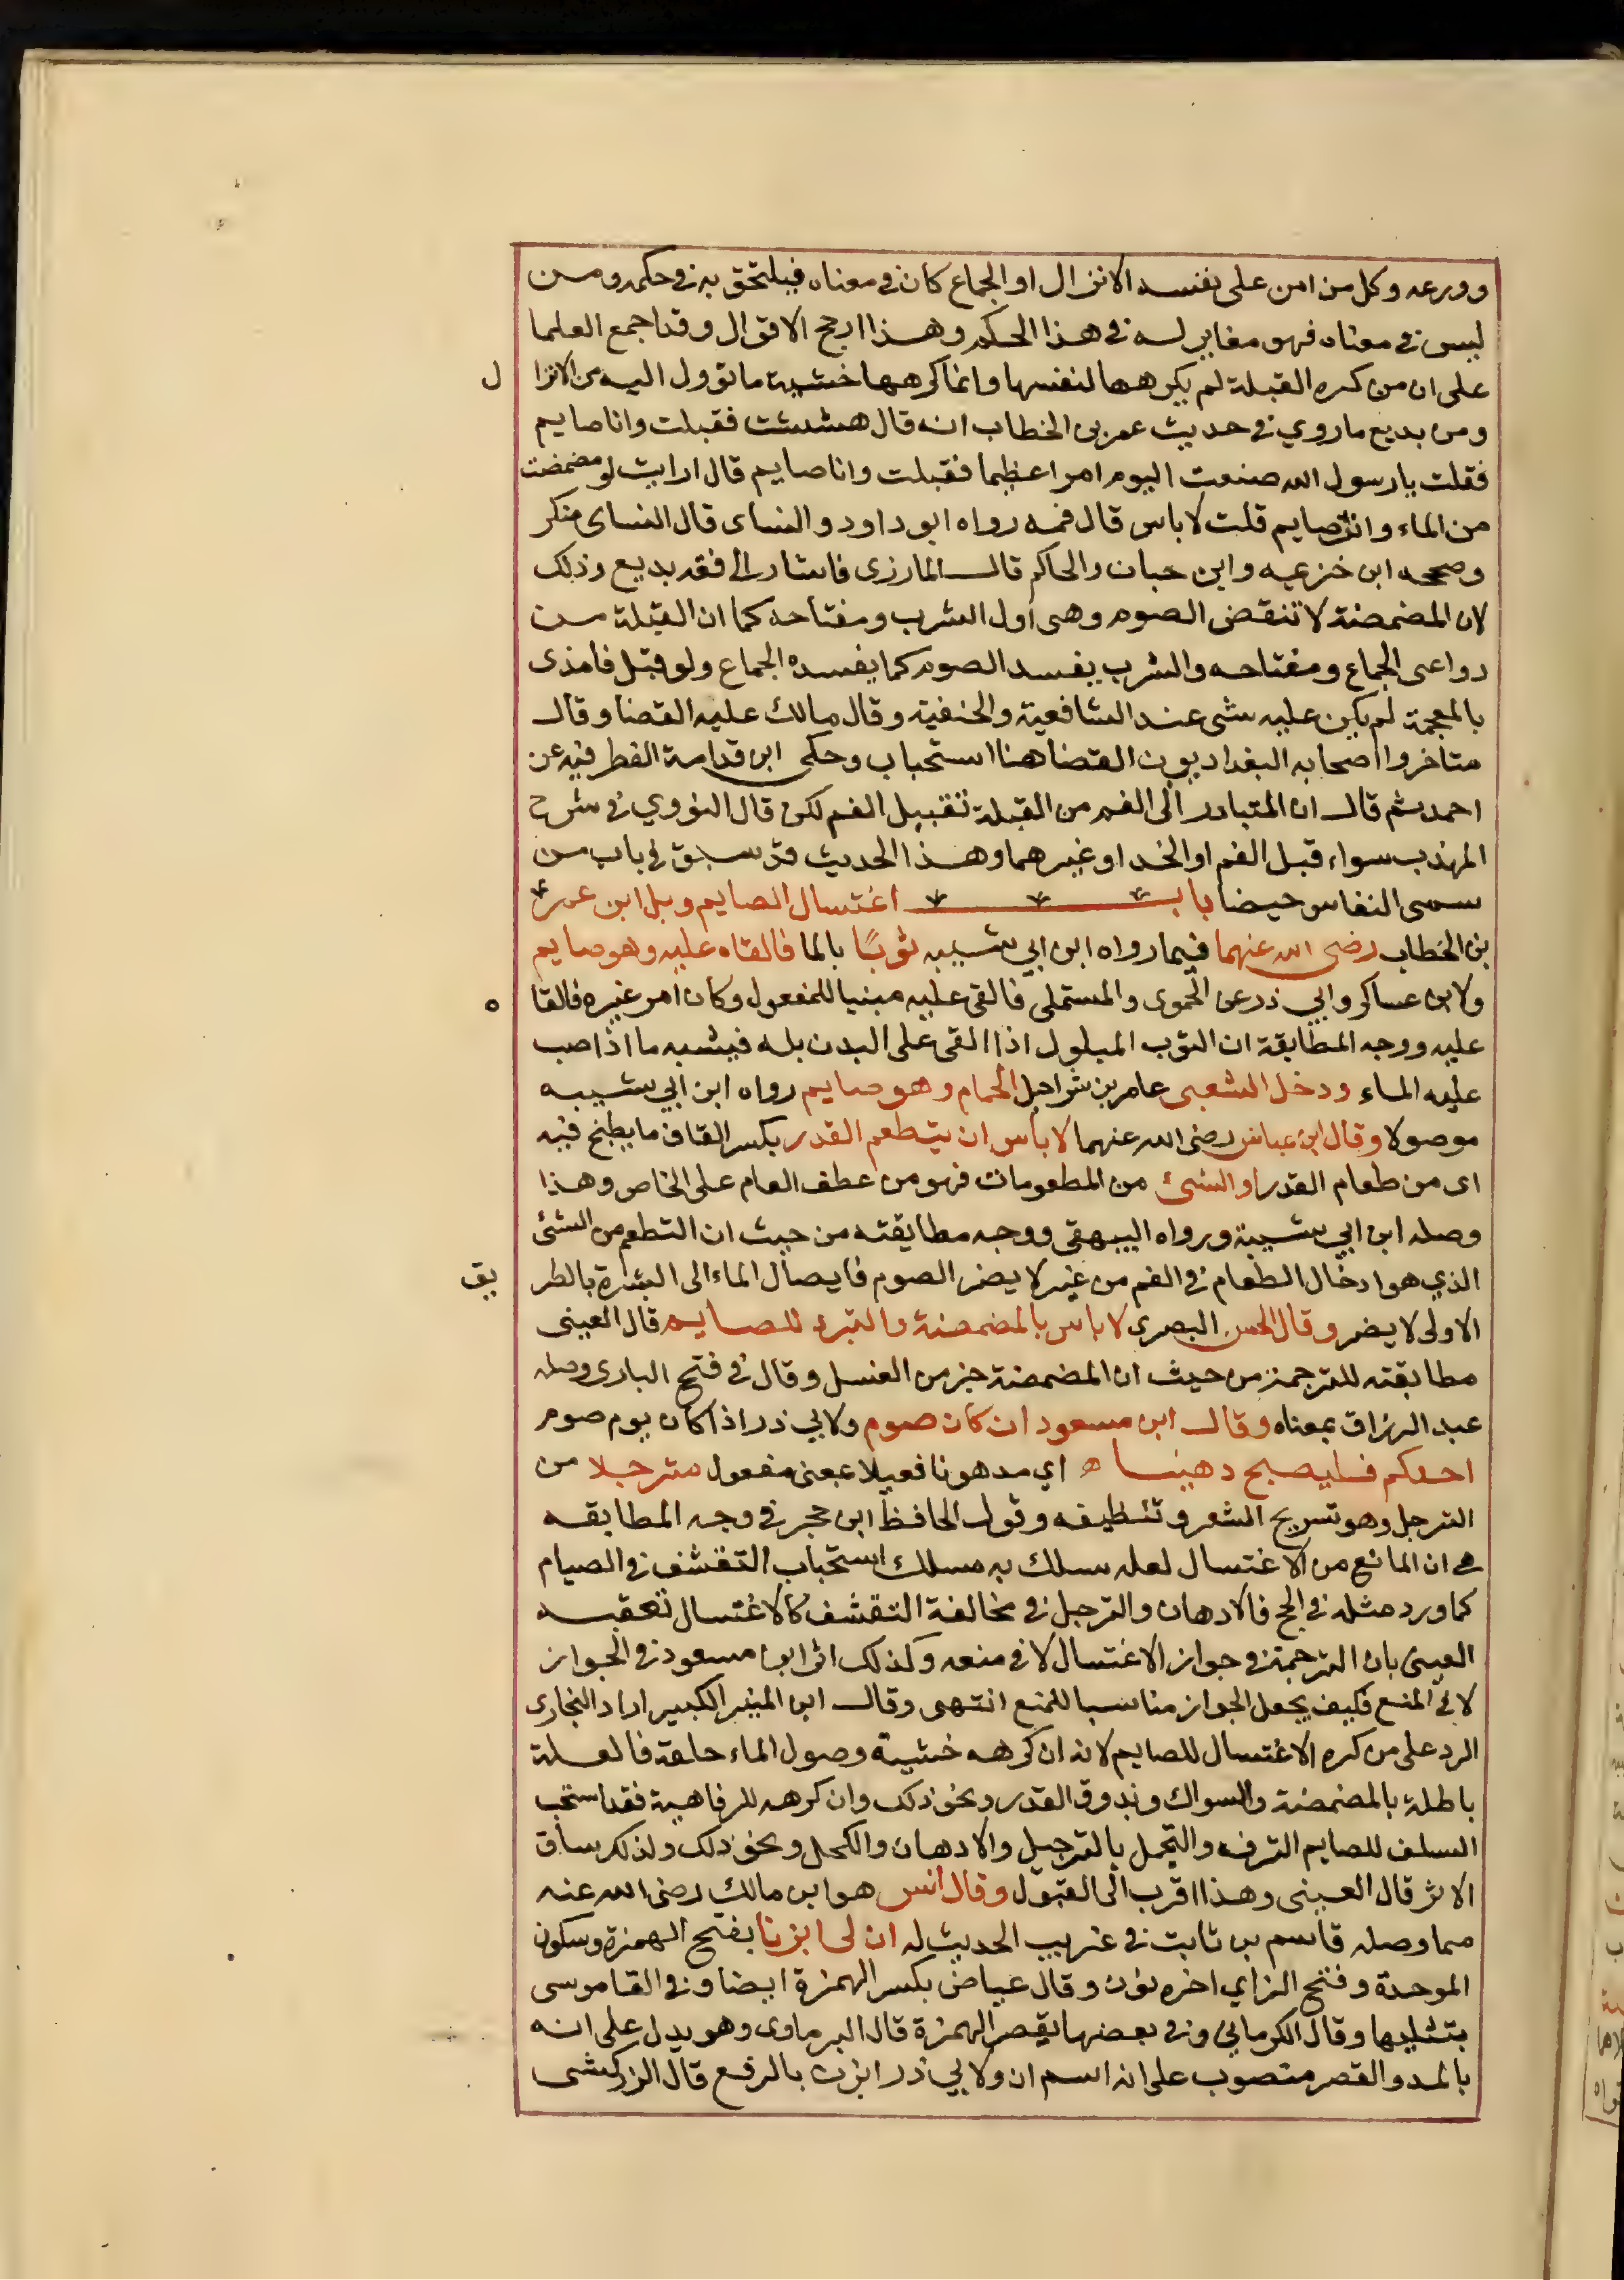 وورعه وكل من امن على نفسه الانزال او الجماع كان في معناه فيلتحق به في حكمه ومن
ليس في معناه فهو مغاير له في هذا الحكم وهذا ارجح الاقوال وقد اجمع العلما
على ان من كره القبلة لم يكرهها لنفسها وانما كرهها خشية ما تؤول اليه من الانزا ل
ومن بديع ما روي في حديث عمر بن الخطاب انه قال هششت فقبلت وانا صايم
فقلت يا رسول الله صنعت اليوم امرا عظيما فقبلت وانا صايم قال ارايت لو مضمضت
من الماء وانت صايم قلت لا باس قال فمه رواه ابو داود والنساى قال النساى منكر
وصححه ابن خزيمه وابن حبان والحاكم قال المازرى فاشار الى فقه بديع وذلك
لان المضمضة لا تنقض الصوم وهى اول الشرب ومفتاحه كما ان القبلة من
دواعى الجماع ومفتاحه والشرب يفسد الصوم كما يفسده الجماع ولو قبل فامذى
بالمعجمة لم يكن عليه شى عند الشافعية والحنفية وقال مالك عليه القضا وقال
متاخروا اصحابه البغداديون القضا هنا استحباب وحكى ابن قدامة الفطر فيه عن
احمد ثم قال ان المتبادر الى الفهم من القبلة تقبيل الفم لكن قال النووي في شرح
المهذب سواء قبل الفم او الخد او غيرهما وهذا الحديث قد سبق في باب من
سمى النفاس حيضا باب اغتسال الصايم وبل ابن عمر
بن الخطاب رضى الله عنهما فيما رواه ابن ابي شيبه ثوبًا بالما فالقاه عليه وهو صايم
ولابن عساكر وابي ذر عن الحموى والمستملى فالقى عليه مبنيا للمفعول وكان امر غيره فالقا ه
عليه ووجه المطابقة ان الثوب المبلول اذا القى على البدن بله فيشبه ما اذا صب
عليه الماء ودخل الشعبى عامر بن شراحيل الحمام وهو صايم رواه ابن ابي شيبه
موصولا وقال ابن عباس رضى الله عنهما لا بأس ان يتطعم القدر بكسر القاف ما يطبخ فيه
اى من طعام القدر او الشئ من المطعومات فهو من عطف العام على الخاص وهذا
وصله ابن ابي شيبة ورواه البيهقى ووجه مطابقته من حيث ان التطعم من الشئ
الذي هو ادخال الطعام في الفم من غير لا يضر الصوم فايصال الماء الى البشرة بالطر يق
الاولى لا يضر وقال الحسن البصرى لا باس بالمضمضة والتبرد للصايم قال العينى
مطابقته للترجمة من حيث ان المضمضة جز من الغسل وقال في فتح البارى وصله
عبد الرزاق بمعناه وقال ابن مسعود ان كان صوم ولابي ذر اذا كان يوم صوم
احدكم فليصبح دهينا ه اي مدهونا فعيلا بمعنى مفعول مترجلا من
الترجل وهو تسريح الشعر وتنظيفه وقول الحافظ ابن حجر في وجه المطابقه
هي ان المانع من الاغتسال لعله سلك به مسلك استحباب التقشف في الصيام
كما ورد مثله في الحج فالادهان والترجل في مخالفة التقشف كالاغتسال تعقبه
العينى بان الترجمة في جواز الاغتسال لا في منعه وكذلك اثر ابن مسعود في الجواز
لا في المنع فكيف يجعل الجواز مناسبا للمنع انتهى وقال ابن المنير الكبير اراد البخارى
الرد على من كره الاغتسال للصايم لانه ان كرهه خشية وصول الماء حلقه فالعلة
باطلة بالمضمضة والسواك وبذوق القدر ونحو ذلك وان كرهه للرفاهية فقد استحب
السلف للصايم الترفه والتجمل بالترجل والادهان والكحل ونحو ذلك ولذلك ساق
الاثر قال العينى وهذا اقرب الى القبول وقال انس هو ابن مالك رضى الله عنه
مما وصله قاسم بن ثابت في غريب الحديث له ان لى ابزنا بفتح الهمزة وسكون
الموحدة وفتح الزاي اخره نون وقال عياض بكسر الهمزة ايضا وفي القاموسى
بتثليثها وقال الكرمانى وفي بعضها بقصر الهمزة قال البرماوى وهو يدل على انه
بالمد والقصر منصوب على انه اسم ان ولابي ذر ابزن بالرفع قال الزركشى